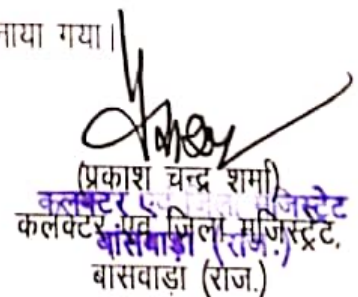 नाया गया।
(प्रकाश चन्द्र शर्मा)
कलक्टर एवं जिला मजिस्ट्रेट
कलक्टर एवं जिला मजिस्ट्रेट,
बांसवाड़ा (राज.)
बांसवाड़ा (राज.)